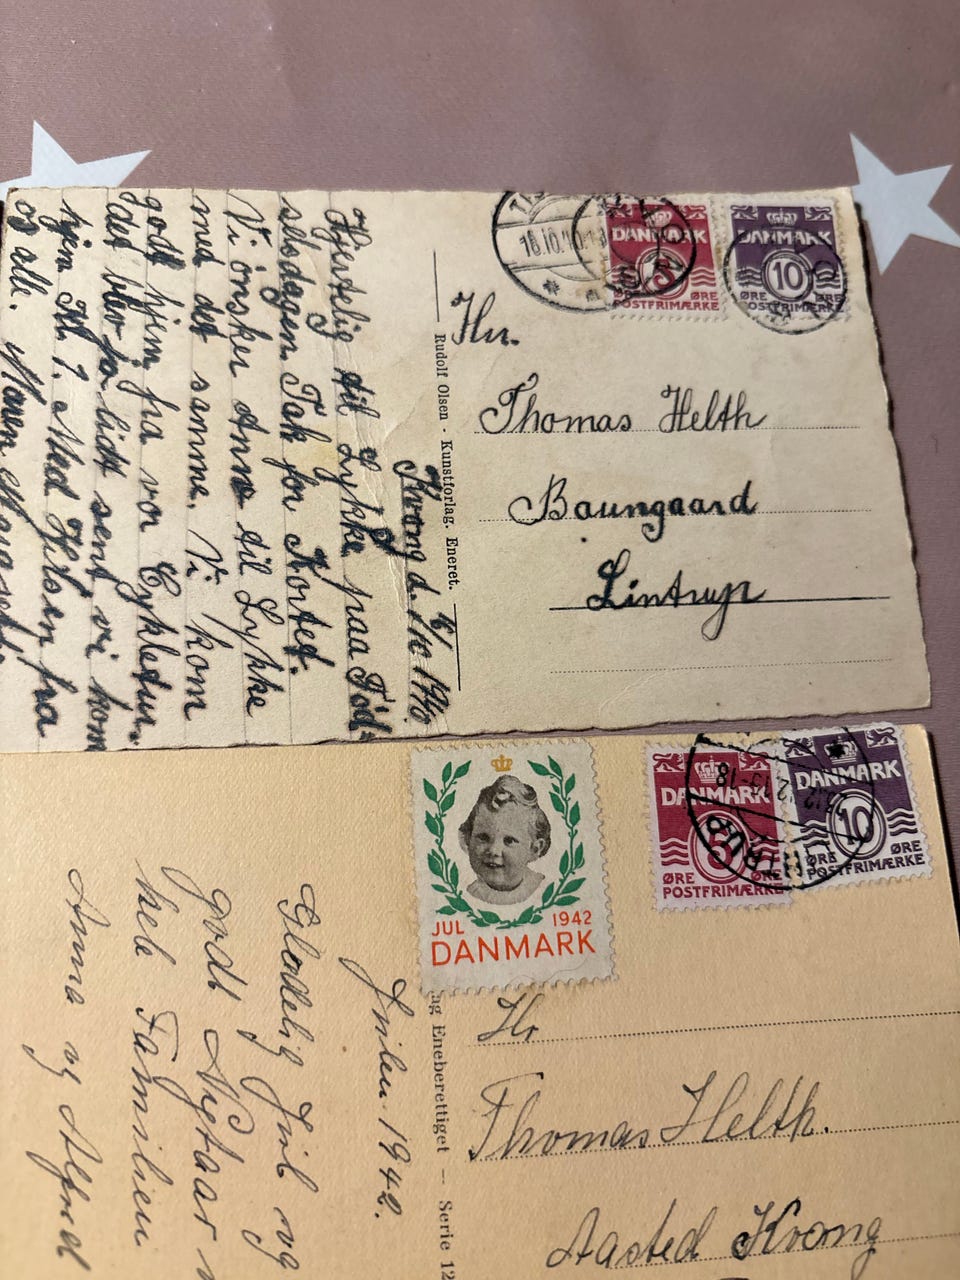 16.10.40
DANMARK
5
ØRE ØRE
POSTFRIMÆRKE
DANMARK
10
ØRE ØRE
POSTFRIMÆRKE
Hr.
Thomas Helth
Baungaard
Lintrup
Rudolf Olsen - Kunstforlag. Eneret.
Kvong d. /10 1940.
Hjertelig til Lykke paa Fød=
selsdagen Tak for Kortet.
Vi ønsker Anne til Lykke
med det samme. Vi kom
godt hjem fra vor Cykletur.
det blev jo lidt sent, vi kom
hjem Kl. 1. Med Hilsen fra
os alle.
JUL 1942
DANMARK
DANMARK
5
ØRE ØRE
POSTFRIMÆRKE
DANMARK
10
ØRE ØRE
POSTFRIMÆRKE
12 13-18
Hr
Thomas Helth.
Aasted Kvong
ag Eneberettiget — Serie 12
Julen 1942.
Glædelig Jul og
godt Nytaar
hele Familien
Anna og Alfred